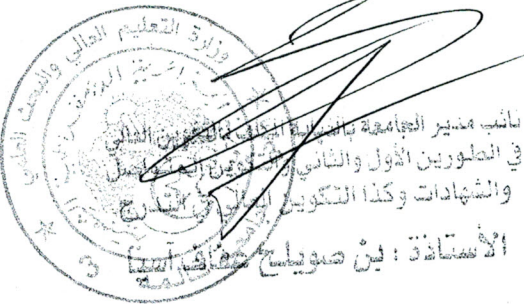 وزارة التعليم العالي والبحث العلمي
نائب مدير الجامعة بالنيابة المكلف بالتكوين العالي
في الطورين الأول والثاني والتكوين المتواصل
والشهادات وكذا التكوين العالي في التدرج
الأستاذة : بن صويلح عفاف آسيا
3